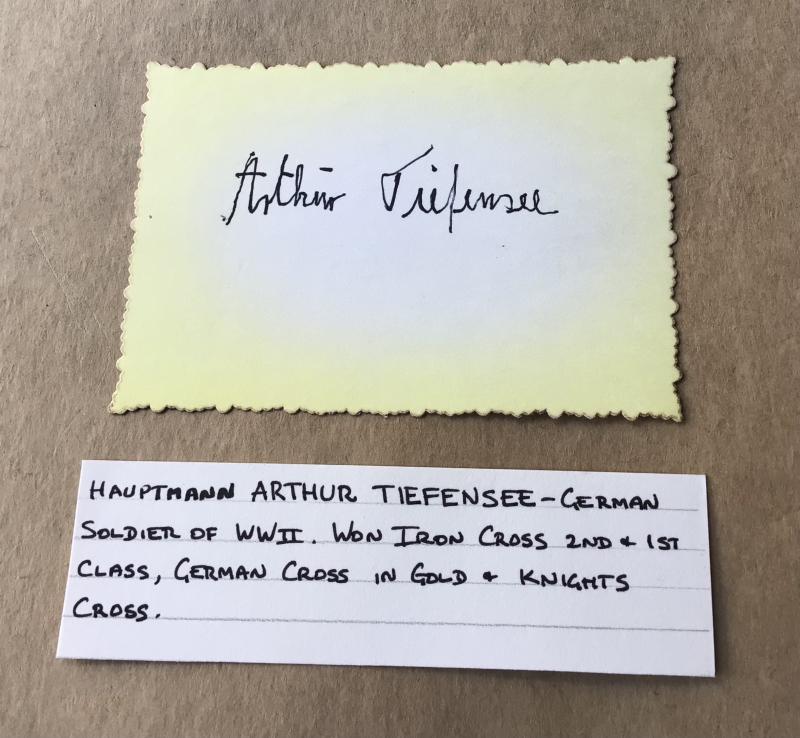 Arthur Tiefensee
HAUPTMANN ARTHUR TIEFENSEE - GERMAN
SOLDIER OF WWII. WON IRON CROSS 2ND & 1ST
CLASS, GERMAN CROSS IN GOLD & KNIGHTS
CROSS.